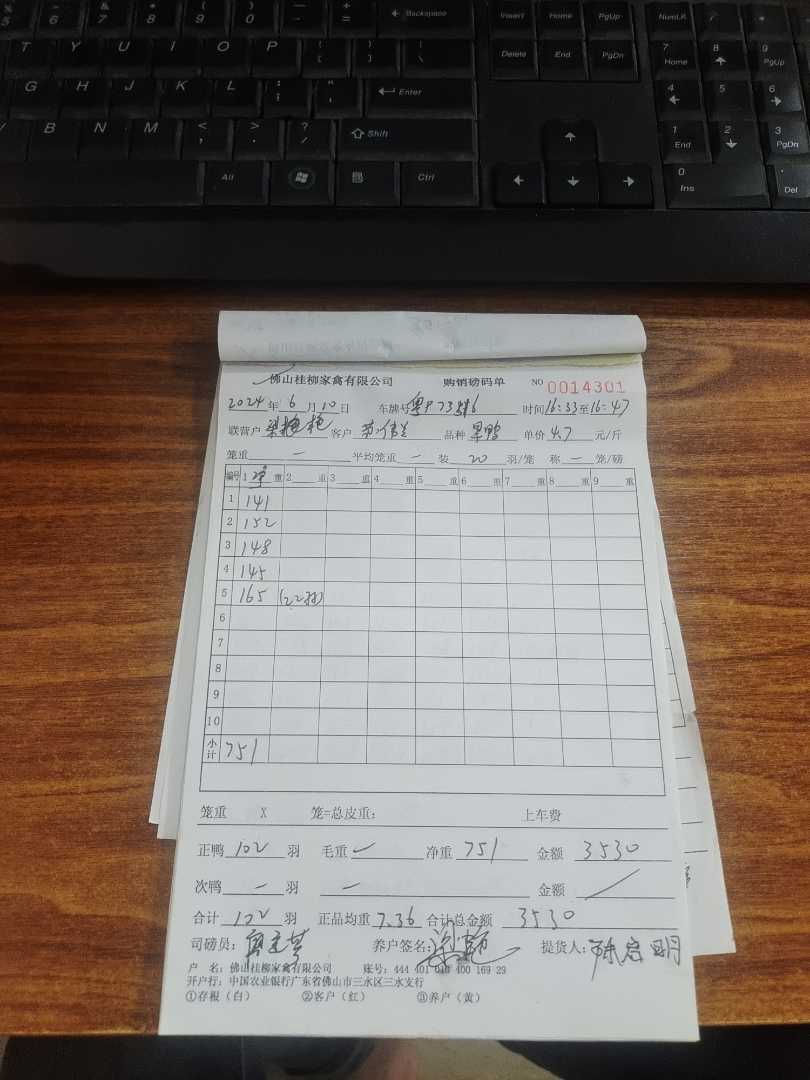 % ^ & * ( ) _ + ← Backspace Insert Home PgUp NumLK / *
5 6 7 8 9 0 - =
T Y U I O P { } | Delete End PgDn 7 Home 8 9 PgUp
[ ] \
G H J K L : " ← Enter 4 5 6
; '
V B N M < > ? Shift 1 End 2 3 PgDn
, . /
Alt Ctrl 0 Ins . Del
佛山桂柳家禽有限公司 购销磅码单 NO 0014301
2024年6月10日 车牌号 粤 时间16:33至16:47
联营户 梁艳艳 客户 品种 单价4.7元/斤
笼重 一 平均笼重 一 装 20 羽/笼 称 一 笼/磅
编号 1 重 2 重 3 重 4 重 5 重 6 重 7 重 8 重 9 重
1 141
2 152
3 148
4 145
5 165 (22羽)
6
7
8
9
10
小计 751
笼重 X 笼=总皮重: 上车费
正鸭 102 羽 毛重 一 净重 751 金额 3530
次鸭 一 羽 一 金额
合计 102 羽 正品均重 7.36 合计总金额 3530
司磅员: 养户签名: 提货人: 陈启明
户 名: 佛山桂柳家禽有限公司 账号: 444 401 010 400 169 29
开户行: 中国农业银行广东省佛山市三水区三水支行
①存根(白) ②客户(红) ③养户(黄)